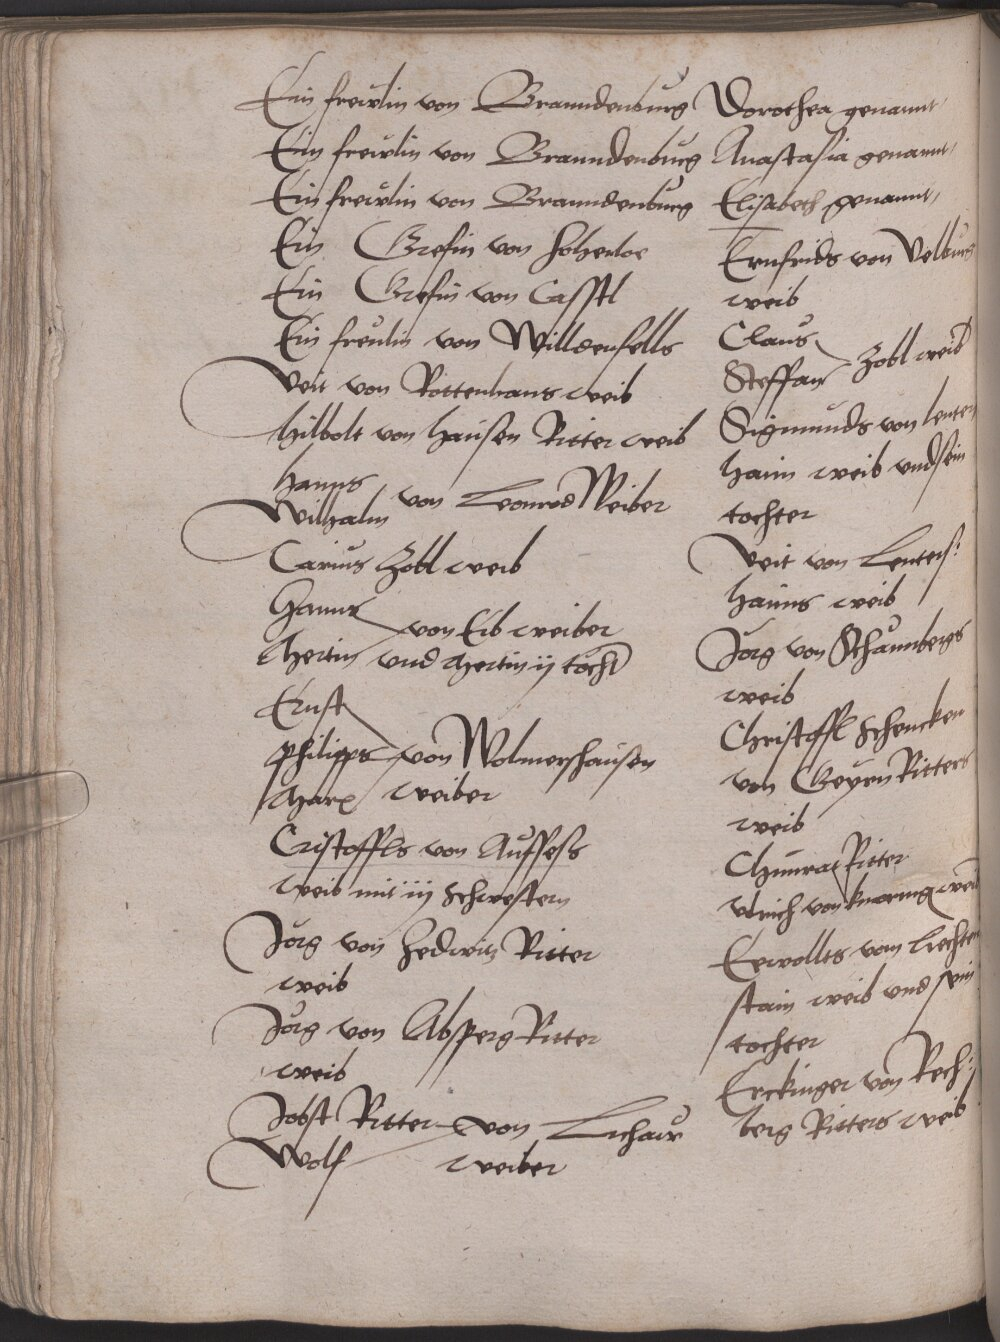 Ein freüwlin von Branndenburg Dorothea genannt
Ein freüwlin von Branndenburg Anastasia genannt
Ein freüwlin von Branndenburg Elisabeth genannt
Ein Grefin von Hohenloe
Ein Grefin von Casstl
Ein freülin von Willdenfells
Veit von Rottenhans weib
Hilbolt von Hausen Ritter weib
Hanns
Wilhalm von Leonrod Weiber
Carius Zobl weib
Hanns
von Eib weiber
Mertin und Mertin ij töcht
Ernst
Philipps von Wolmershausen
Marx weiber
Cristoffls von Auffsess
weib mit iij Schwestern
Jörg von Hedwitz Ritter
weib
Jörg von Absperg Ritter
weib
Jobst Ritter von Lichaw
Wolf weiber
Ernfrids von Velburg
weib
Claus
Steffan Zobl weib
Sigmunds von Lenters
haim weib und sein
tochter
Veit von Lenters:
haims weib
Jörg von Schaunbergs
weib
Christoffl Schencken
von Geyrn Ritters
weib
Chunrat Ritter
Ulrich von Knoring weib
Ewollts vom Liechten
stain weib und sein
tochter
Erckinger von Rech:
berg Ritters weib